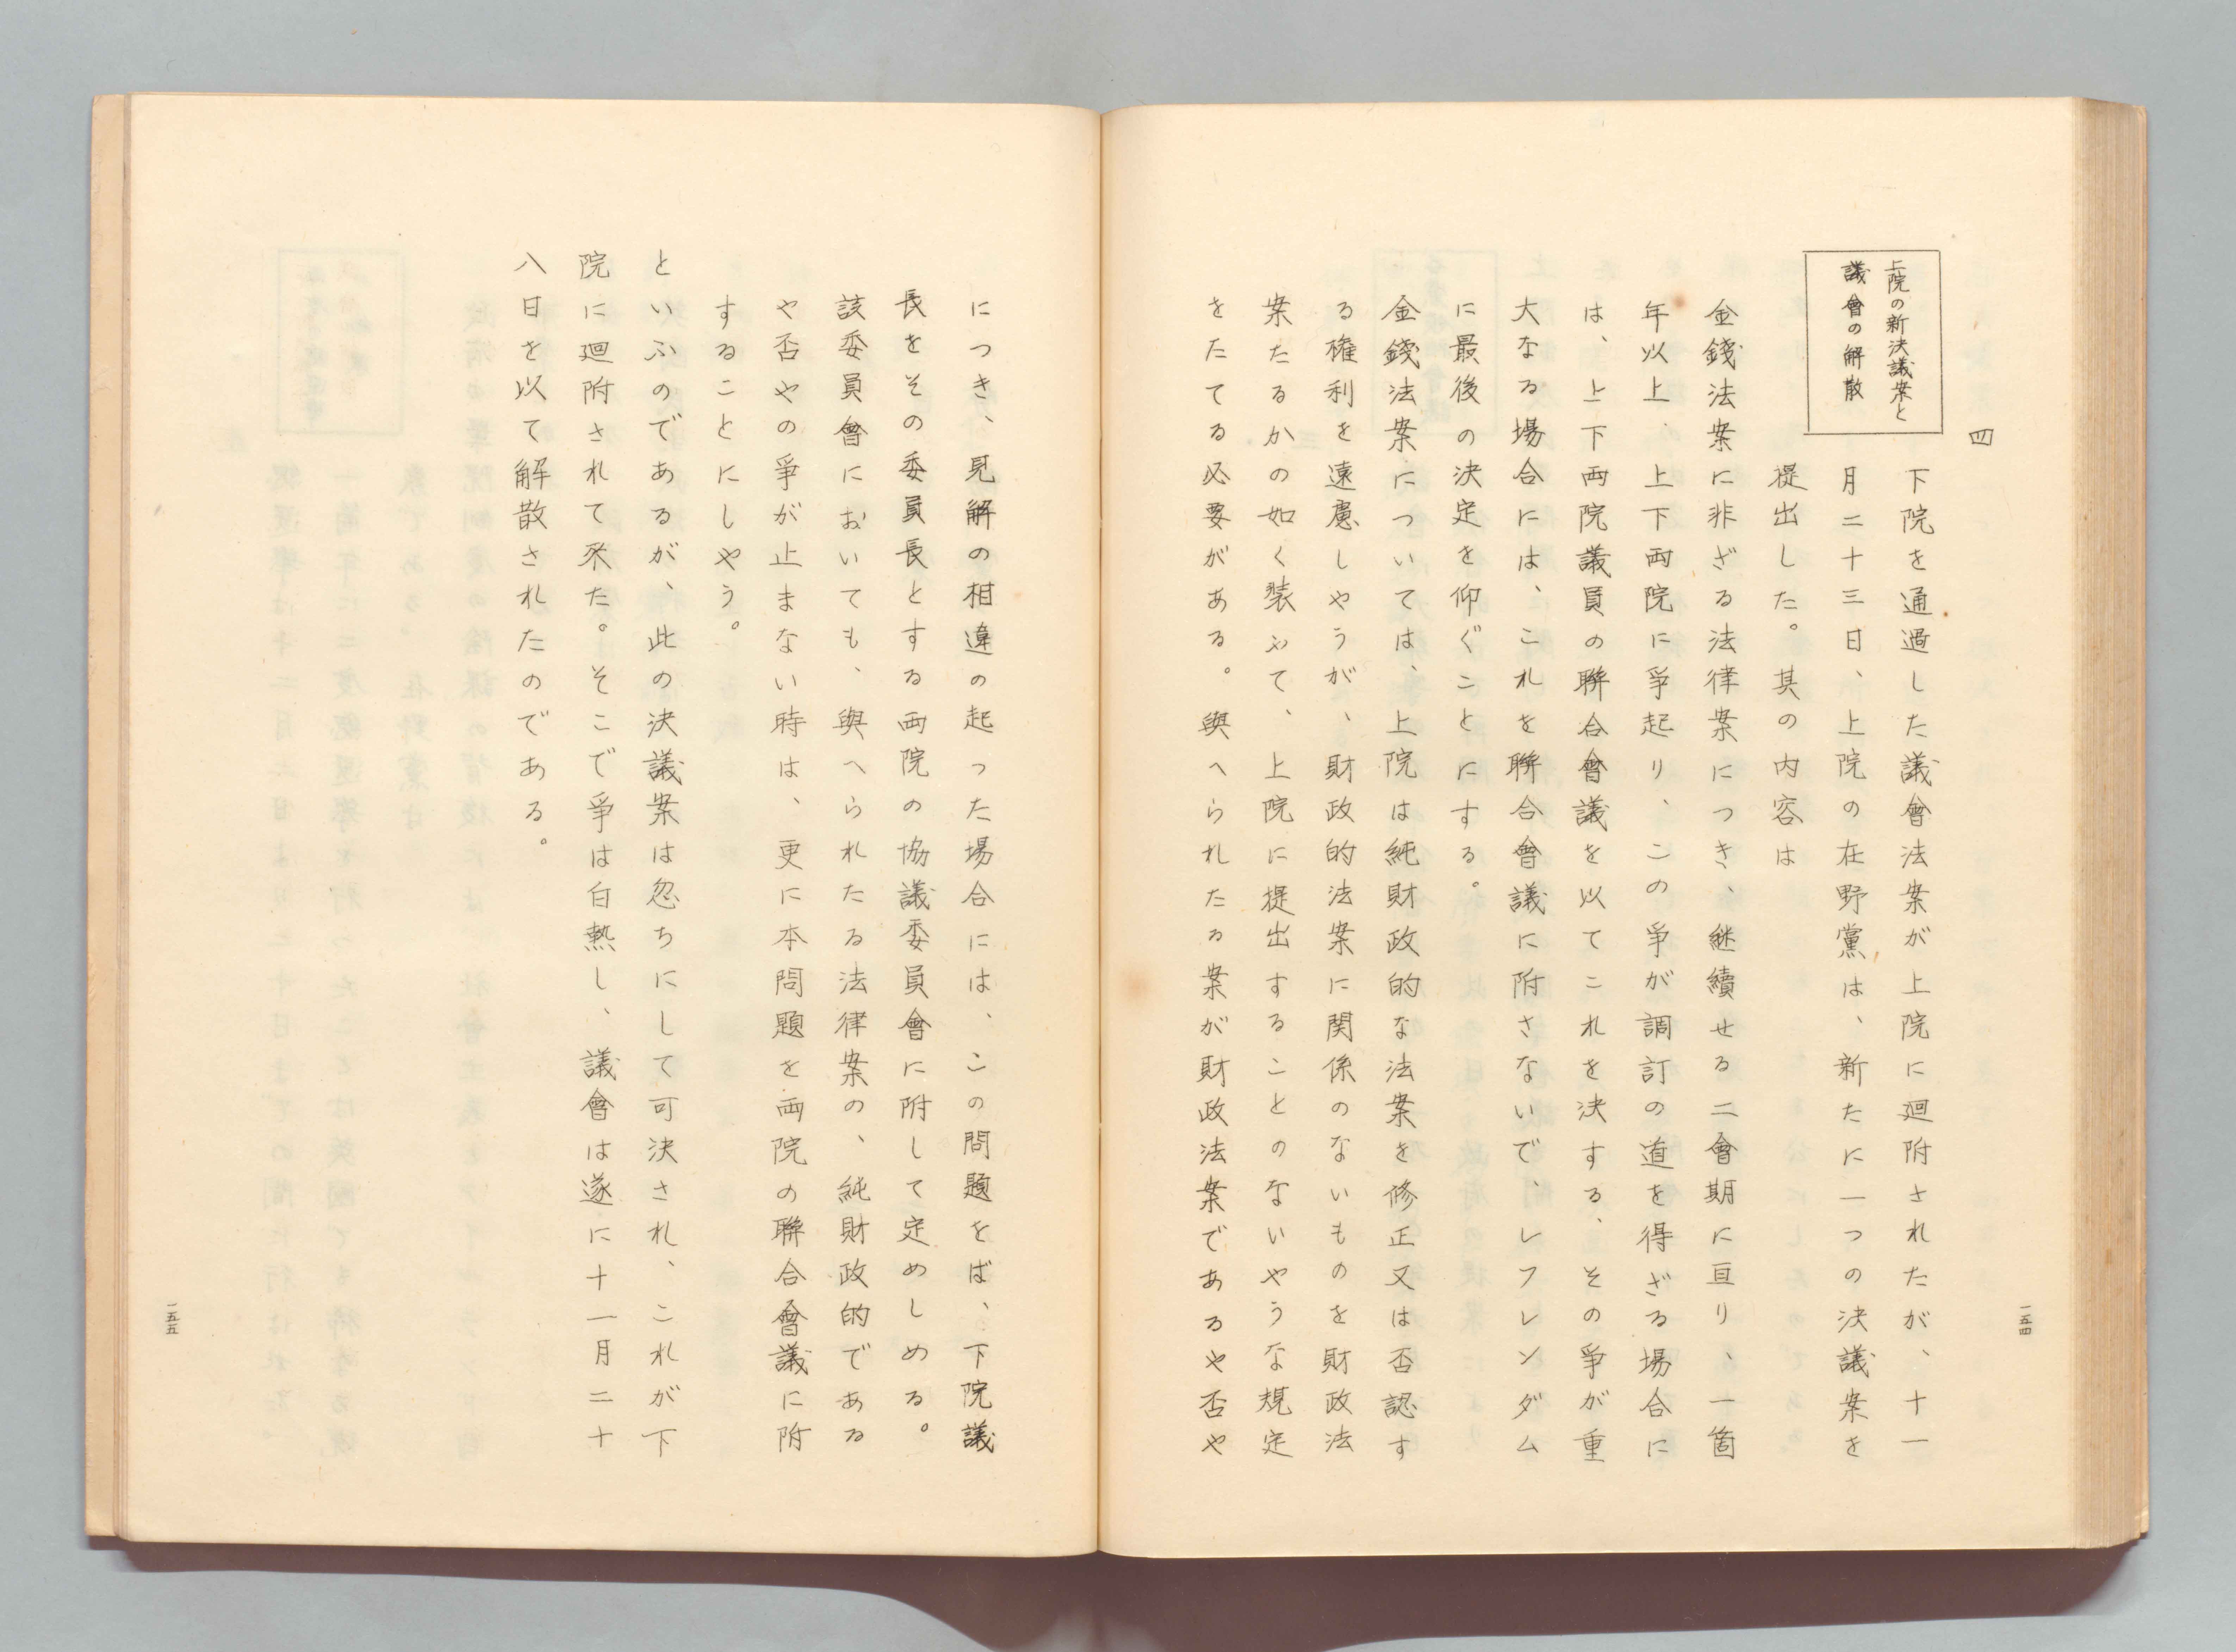 四
上院の新決議案と
議會の解散
下院を通過した議會法案が上院に廻附されたが、十一
月二十三日、上院の在野黨は、新たに一つの決議案を
提出した。其の内容は
金錢法案に非ざる法律案につき、継續せる二會期に亘り、一箇
年以上、上下両院に爭起り、この爭が調訂の道を得ざる場合に
は、上下両院議員の聯合會議を以てこれを決する、その爭が重
大なる場合には、これを聯合會議に附さないで、レフレンダム
に最後の決定を仰ぐことにする。
金錢法案については、上院は純財政的な法案を修正又は否認す
る権利を遠慮しやうが、財政的法案に関係のないものを財政法
案たるかの如く裝ふて、上院に提出することのないやうな規定
をたてる必要がある。與へられたる案が財政法案であるや否や
一五四
につき、見解の相違の起った場合には、この問題をば、下院議
長をその委員長とする両院の協議委員會に附して定めしめる。
該委員會においても、與へられたる法律案の、純財政的である
や否やの爭が止まない時は、更に本問題を両院の聯合會議に附
することにしやう。
といふのであるが、此の決議案は忽ちにして可決され、これが下
院に廻附されて來た。そこで爭は白熱し、議會は遂に十一月二十
八日を以て解散されたのである。
一五五